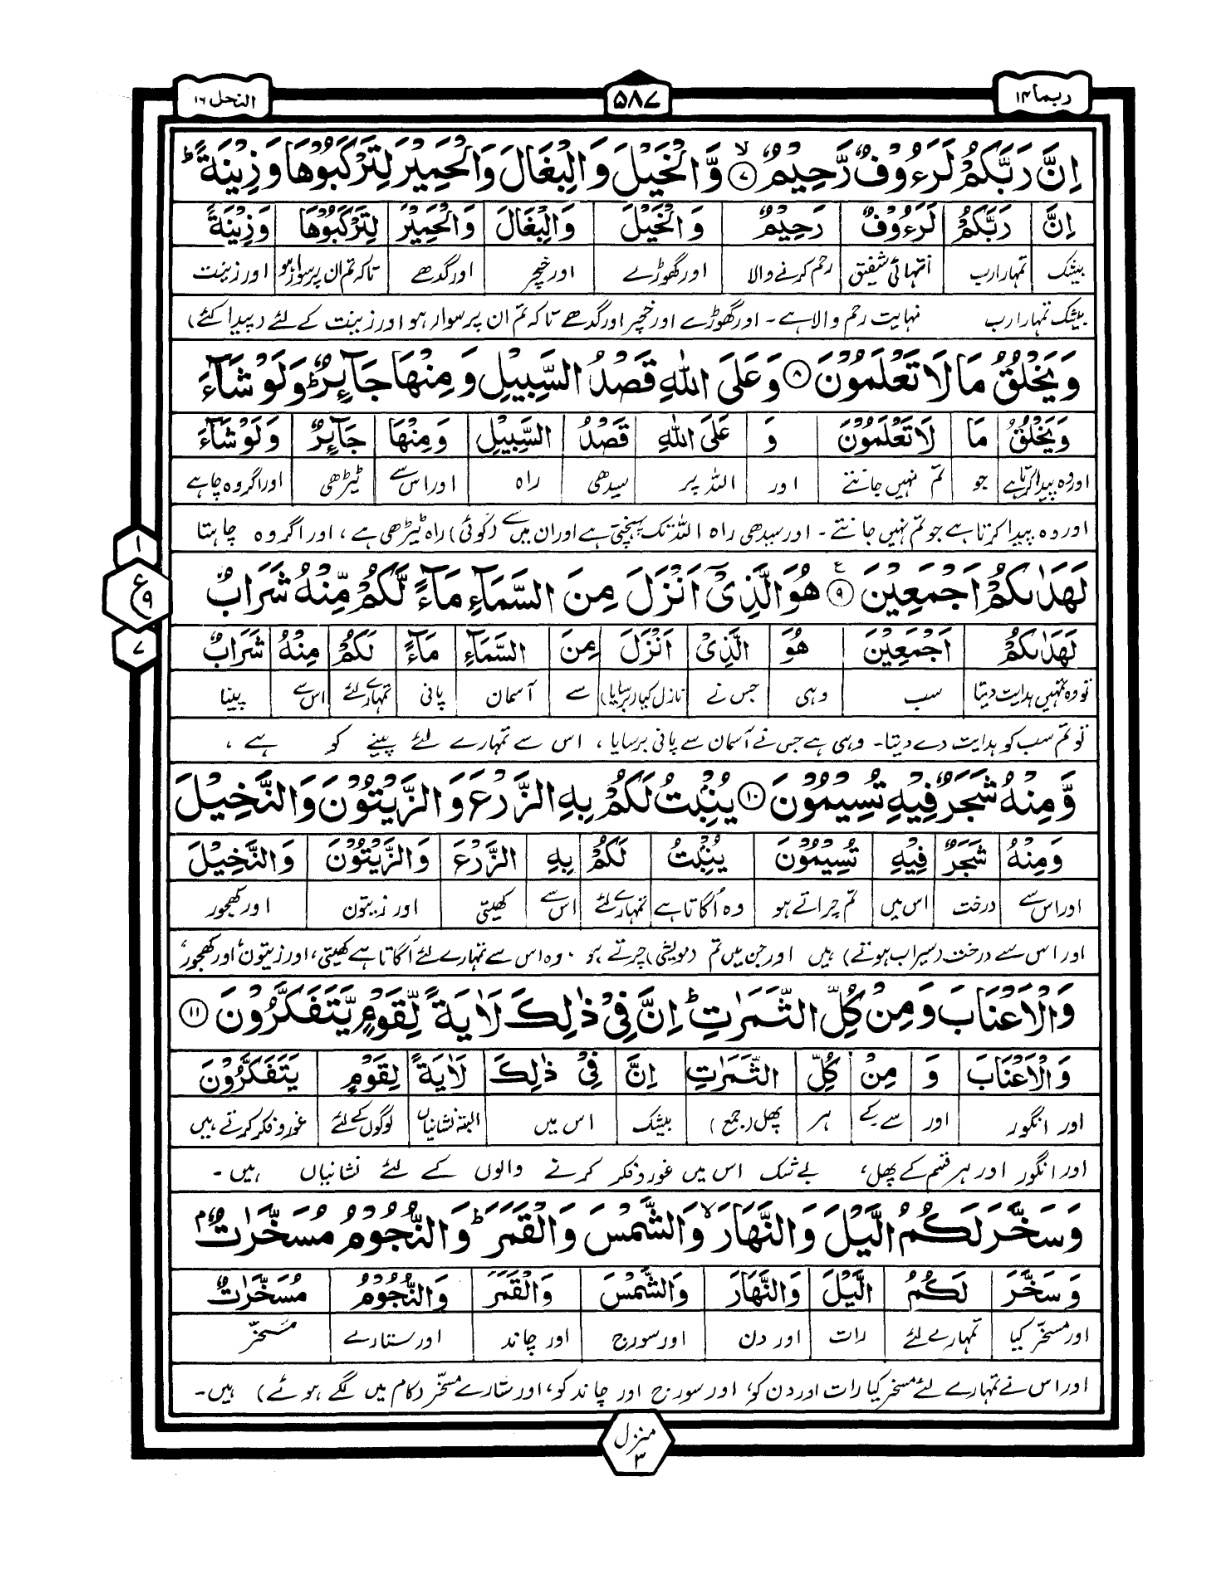 ربما ١٤
٥٨٧
النحل ١٦
اِنَّ رَبَّكُمْ لَرَءُوْفٌ رَّحِيْمٌ ۙ﴿٧﴾ وَّالْخَيْلَ وَالْبِغَالَ وَالْحَمِيْرَ لِتَرْكَبُوْهَا وَزِيْنَةً ؕ
اِنَّ رَبَّكُمْ لَرَءُوْفٌ رَحِيْمٌ وَالْخَيْلَ وَالْبِغَالَ وَالْحَمِيْرَ لِتَرْكَبُوْهَا وَزِيْنَةً
بیشک تمہارا رب انتہائی شفیق رحم کرنے والا اور گھوڑے اور خچر اور گدھے تاکہ تم ان پر سوار ہو اور زینت
بیشک تمہارا رب نہایت رحم والا ہے۔ اور گھوڑے اور خچر اور گدھے تاکہ تم ان پر سوار ہو اور زینت کے لئے (پیدا کئے)
وَيَخْلُقُ مَا لَا تَعْلَمُوْنَ ﴿٨﴾ وَعَلَى اللّٰهِ قَصْدُ السَّبِيْلِ وَمِنْهَا جَآئِرٌ ؕ وَلَوْ شَآءَ
وَيَخْلُقُ مَا لَا تَعْلَمُوْنَ وَ عَلَى اللّٰهِ قَصْدُ السَّبِيْلِ وَمِنْهَا جَآئِرٌ وَلَوْ شَآءَ
اور وہ پیدا کرتا ہے جو تم نہیں جانتے اور اللہ پر سیدھی راہ اور اس سے ٹیڑھی اور اگر وہ چاہے
اور وہ پیدا کرتا ہے جو تم نہیں جانتے۔ اور سیدھی راہ اللہ تک پہنچتی ہے اور ان میں سے (کوئی) راہ ٹیڑھی ہے، اور اگر وہ چاہتا
لَهَدٰىكُمْ اَجْمَعِيْنَ ﴿٩﴾ ع هُوَ الَّذِيْٓ اَنْزَلَ مِنَ السَّمَآءِ مَآءً لَّكُمْ مِّنْهُ شَرَابٌ
لَهَدٰىكُمْ اَجْمَعِيْنَ هُوَ الَّذِيْٓ اَنْزَلَ مِنَ السَّمَآءِ مَآءً لَكُمْ مِنْهُ شَرَابٌ
تو وہ تمہیں ہدایت دیتا سب وہی جس نے نازل کیا (برسایا) سے آسمان پانی تمہارے لئے اس سے پینا
تو تم سب کو ہدایت دے دیتا۔ وہی ہے جس نے آسمان سے پانی برسایا، اس سے تمہارے لئے پینے کو ہے،
١
ع
٩
٧
وَّمِنْهُ شَجَرٌ فِيْهِ تُسِيْمُوْنَ ﴿١٠﴾ يُنْۢبِتُ لَكُمْ بِهِ الزَّرْعَ وَالزَّيْتُوْنَ وَالنَّخِيْلَ
وَمِنْهُ شَجَرٌ فِيْهِ تُسِيْمُوْنَ يُنْۢبِتُ لَكُمْ بِهِ الزَّرْعَ وَالزَّيْتُوْنَ وَالنَّخِيْلَ
اور اس سے درخت اس میں تم چراتے ہو وہ اُگاتا ہے تمہارے لئے اس سے کھیتی اور زیتون اور کھجور
اور اس سے درخت (سیراب ہوتے) ہیں اور جن میں تم (مویشی) چرتے ہو۔ وہ اس سے تمہارے لئے اُگاتا ہے کھیتی، اور زیتون، اور کھجور،
وَالْاَعْنَابَ وَمِنْ كُلِّ الثَّمَرٰتِ ؕ اِنَّ فِيْ ذٰلِكَ لَاٰيَةً لِّقَوْمٍ يَّتَفَكَّرُوْنَ ﴿١١﴾
وَالْاَعْنَابَ وَ مِنْ كُلِّ الثَّمَرٰتِ اِنَّ فِيْ ذٰلِكَ لَاٰيَةً لِقَوْمٍ يَتَفَكَّرُوْنَ
اور انگور اور سے کے ہر پھل (جمع) بیشک اس میں البتہ نشانیاں لوگوں کے لئے غور و فکر کرتے ہیں
اور انگور اور ہر قسم کے پھل، بے شک اس میں غور و فکر کرنے والوں کے لئے نشانیاں ہیں۔
وَسَخَّرَ لَكُمُ الَّيْلَ وَالنَّهَارَ ۙ وَالشَّمْسَ وَالْقَمَرَ ؕ وَالنُّجُوْمُ مُسَخَّرٰتٌۢ
وَسَخَّرَ لَكُمُ الَّيْلَ وَالنَّهَارَ وَالشَّمْسَ وَالْقَمَرَ وَالنُّجُوْمُ مُسَخَّرٰتٌۢ
اور مسخر کیا تمہارے لئے رات اور دن اور سورج اور چاند اور ستارے مسخر
اور اس نے تمہارے لئے مسخر کیا رات اور دن کو، اور سورج اور چاند کو، اور ستارے مسخر (کام میں لگے ہوئے) ہیں۔
منزل
٣